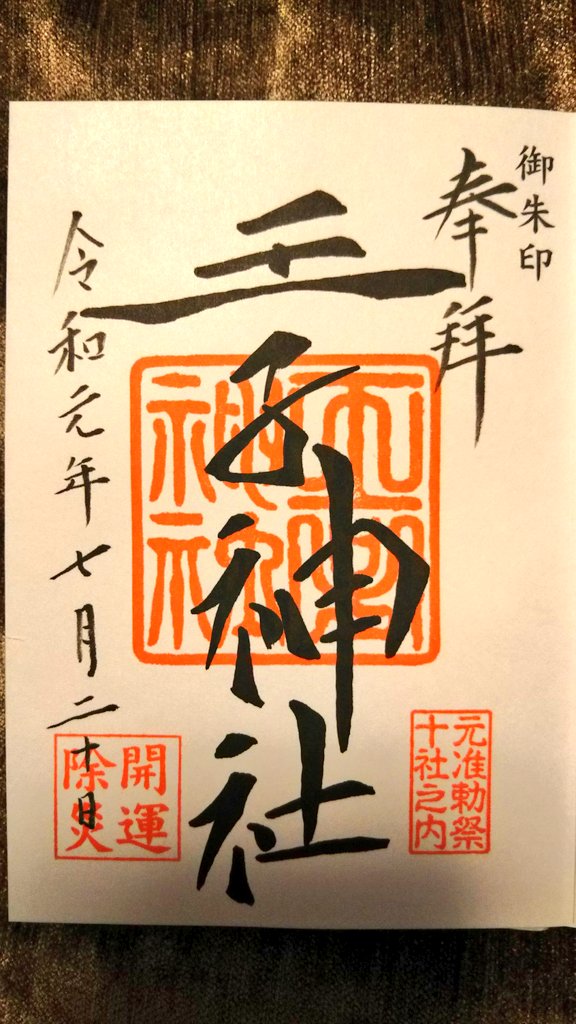 御朱印
奉拝
王子神社
令和元年七月二十日
元准勅祭
十社之内
開運
除災